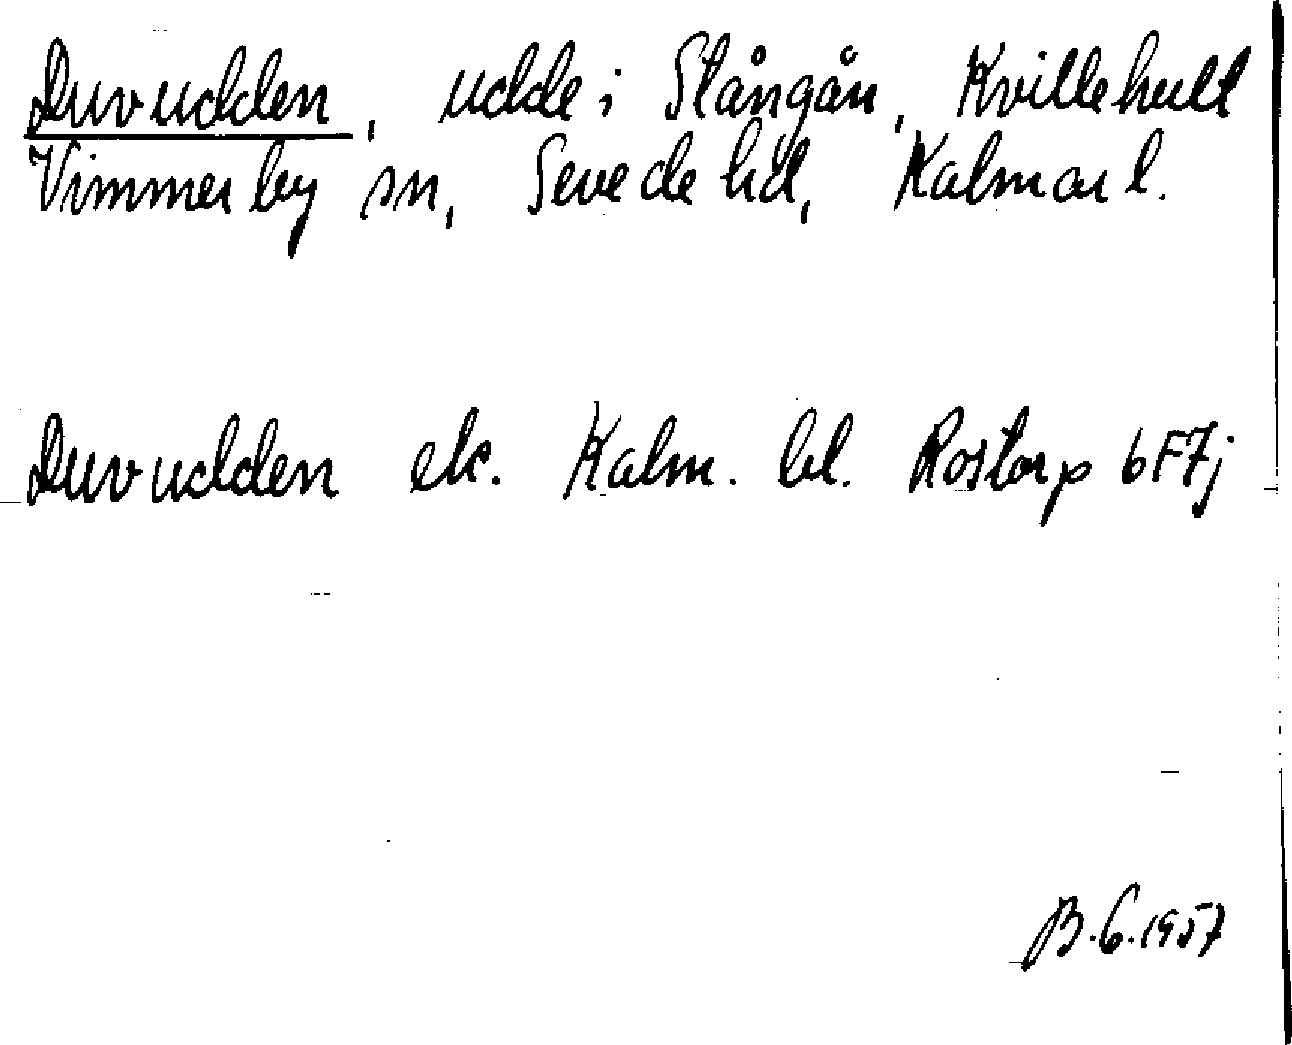 Duvudden, udde i Stångån, Kvillehult
Vimmerby sn, Sevede hd, Kalmar l.
Duvudden ek. Kalm. bl. Rostorp 6F7j
B.G.1957